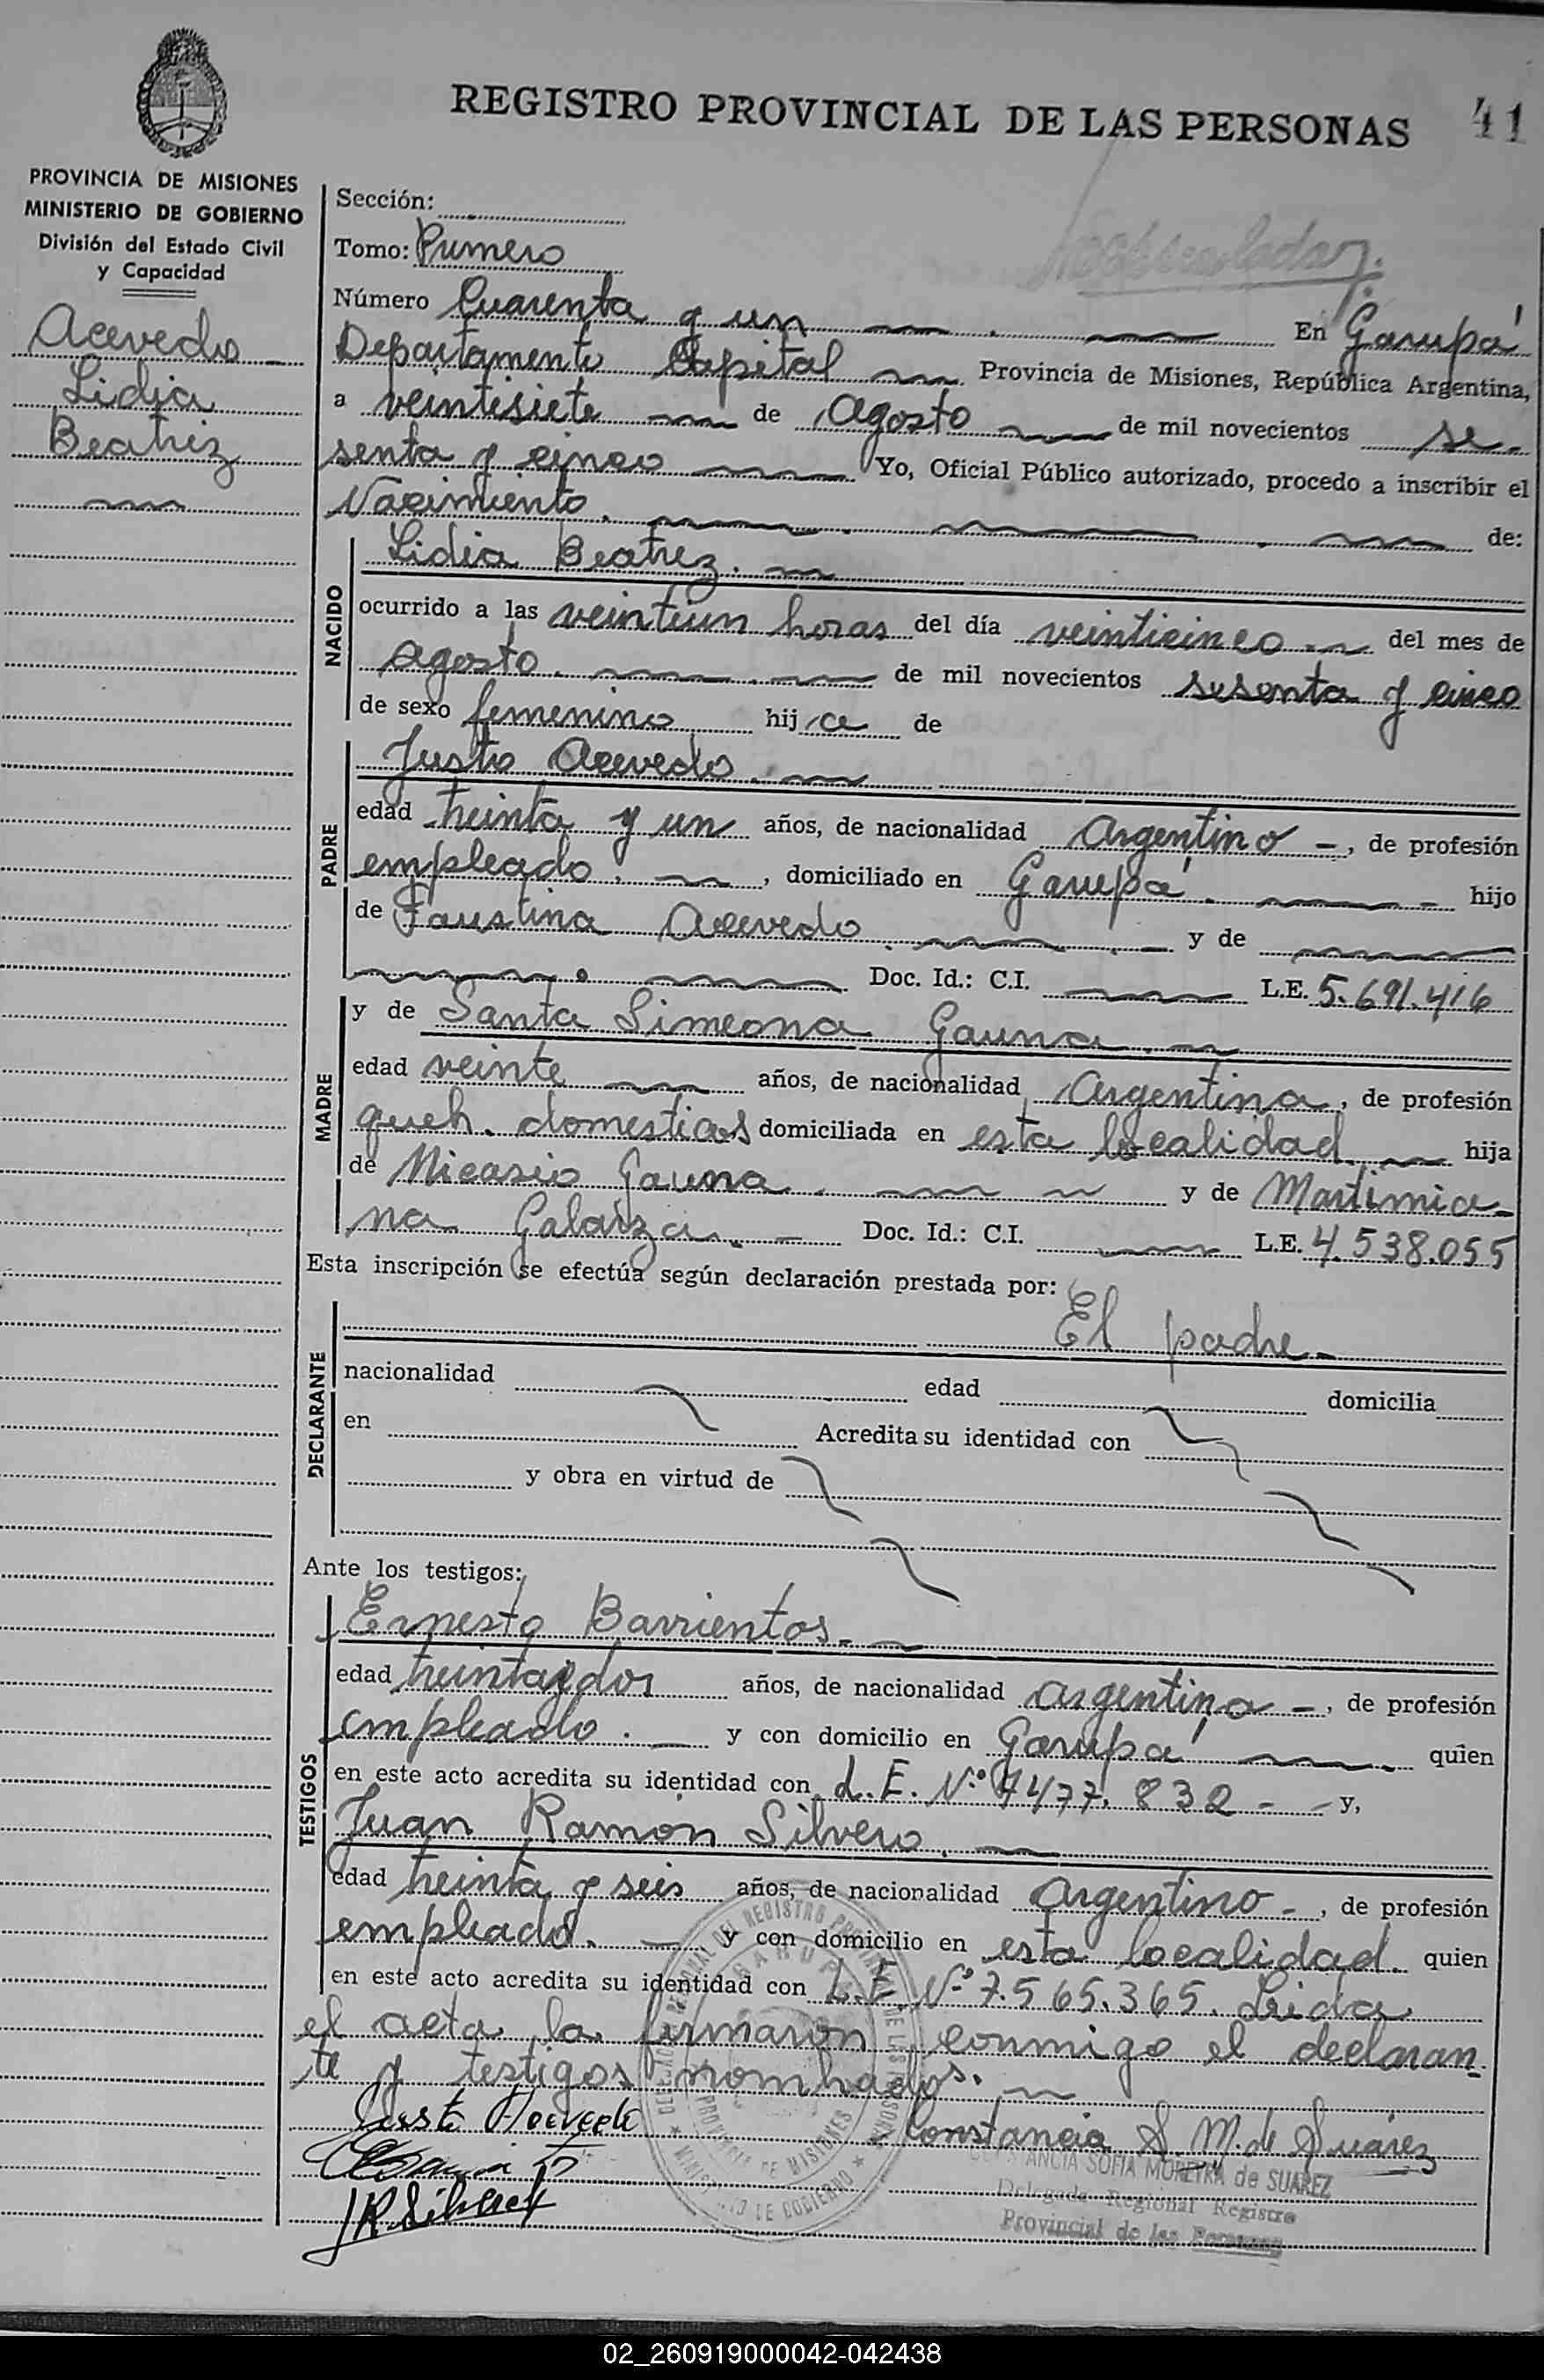 REGISTRO PROVINCIAL DE LAS PERSONAS 41
PROVINCIA DE MISIONES
MINISTERIO DE GOBIERNO
División del Estado Civil
y Capacidad
Acevedo
Lidia
Beatriz
Sección:
Tomo: Primero
Número Cuarenta y un En Garupá
Departamento Capital Provincia de Misiones, República Argentina,
a veintisiete de Agosto de mil novecientos se-
senta y cinco Yo, Oficial Público autorizado, procedo a inscribir el
Nacimiento. de:
NACIDO
Lidia Beatriz.
ocurrido a las veintiun horas del día veinticinco del mes de
agosto. de mil novecientos sesenta y cinco
de sexo femenino hija de
PADRE
Justo Acevedo.
edad treinta y un años, de nacionalidad Argentino -, de profesión
empleado. , domiciliado en Garupá. hijo
de Faustina Acevedo. y de
Doc. Id.: C.I. L.E. 5.691.416
MADRE
y de Santa Simeona Gauna.
edad veinte años, de nacionalidad Argentina, de profesión
queh. domesticos domiciliada en esta localidad. hija
de Nicasio Gauna. y de Martimia-
na Galarza. Doc. Id.: C.I. L.E. 4.538.055
Esta inscripción se efectúa según declaración prestada por:
DECLARANTE
El padre.
nacionalidad edad domicilia
en Acredita su identidad con
y obra en virtud de
Ante los testigos:
TESTIGOS
Ernesto Barrientos.
edad treintaydos años, de nacionalidad argentino -, de profesión
empleado. y con domicilio en Garupá quien
en este acto acredita su identidad con L.E. Nº 7477.832 - - y,
Juan Ramón Silvero.
edad treinta y seis años, de nacionalidad Argentino -, de profesión
empleado. y con domicilio en esta localidad. quien
en este acto acredita su identidad con L.E. Nº 7.565.365. Leida
el acta, la firmaron conmigo el declaran-
te y testigos nombrados.
Justo Acevedo
Constancia S. M. de Suárez
CONSTANCIA SOFIA MOREYRA de SUAREZ
JRSilvero
Delegada Regional Registro
Provincial de las Personas
02_260919000042-042438